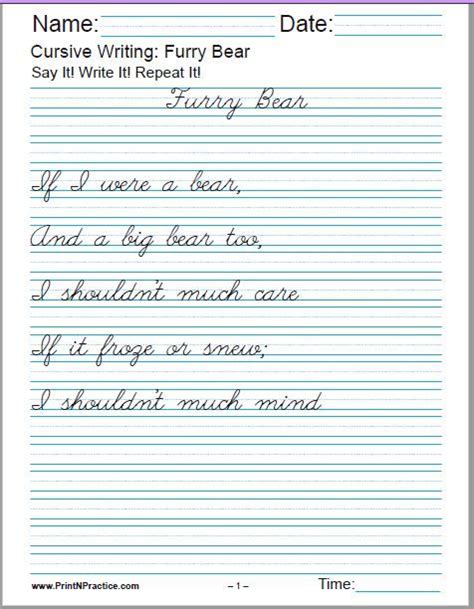 Name: Date:
Cursive Writing: Furry Bear
Say It! Write It! Repeat It!
Furry Bear
If I were a bear,
And a big bear too,
I shouldn't much care
If it froze or snew;
I shouldn't much mind
www.PrintNPractice.com – 1 – Time: